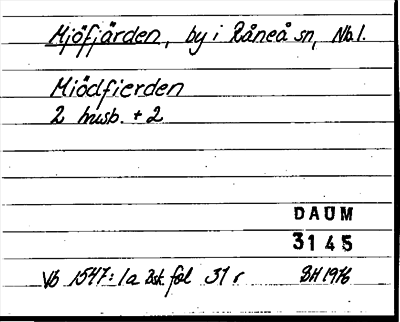 Mjöfjärden, by i Råneå sn, Nbl.
Miödfierden
2 husb. + 2
DAUM
3145
Vb 1547: 1a 2sk. fol 31 r BH 1976